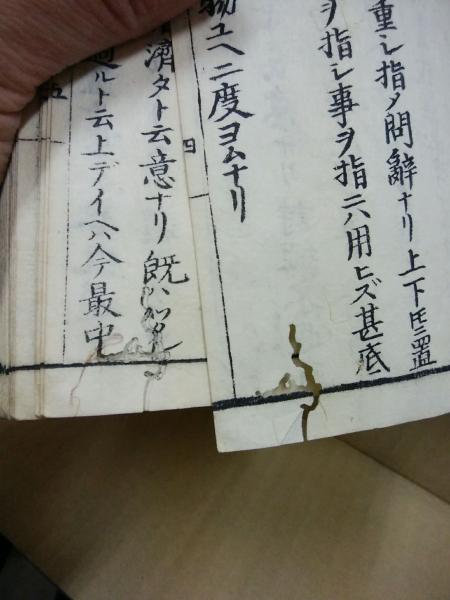 重シ指ノ問辭ナリ上下氏ニ置
ヲ指シ事ヲ指ニハ用ヒズ甚底
物ユヘ二度ヨムナリ
四
濟タト云意ナリ既ハ
過ルト云上デイヘハ今最中
五